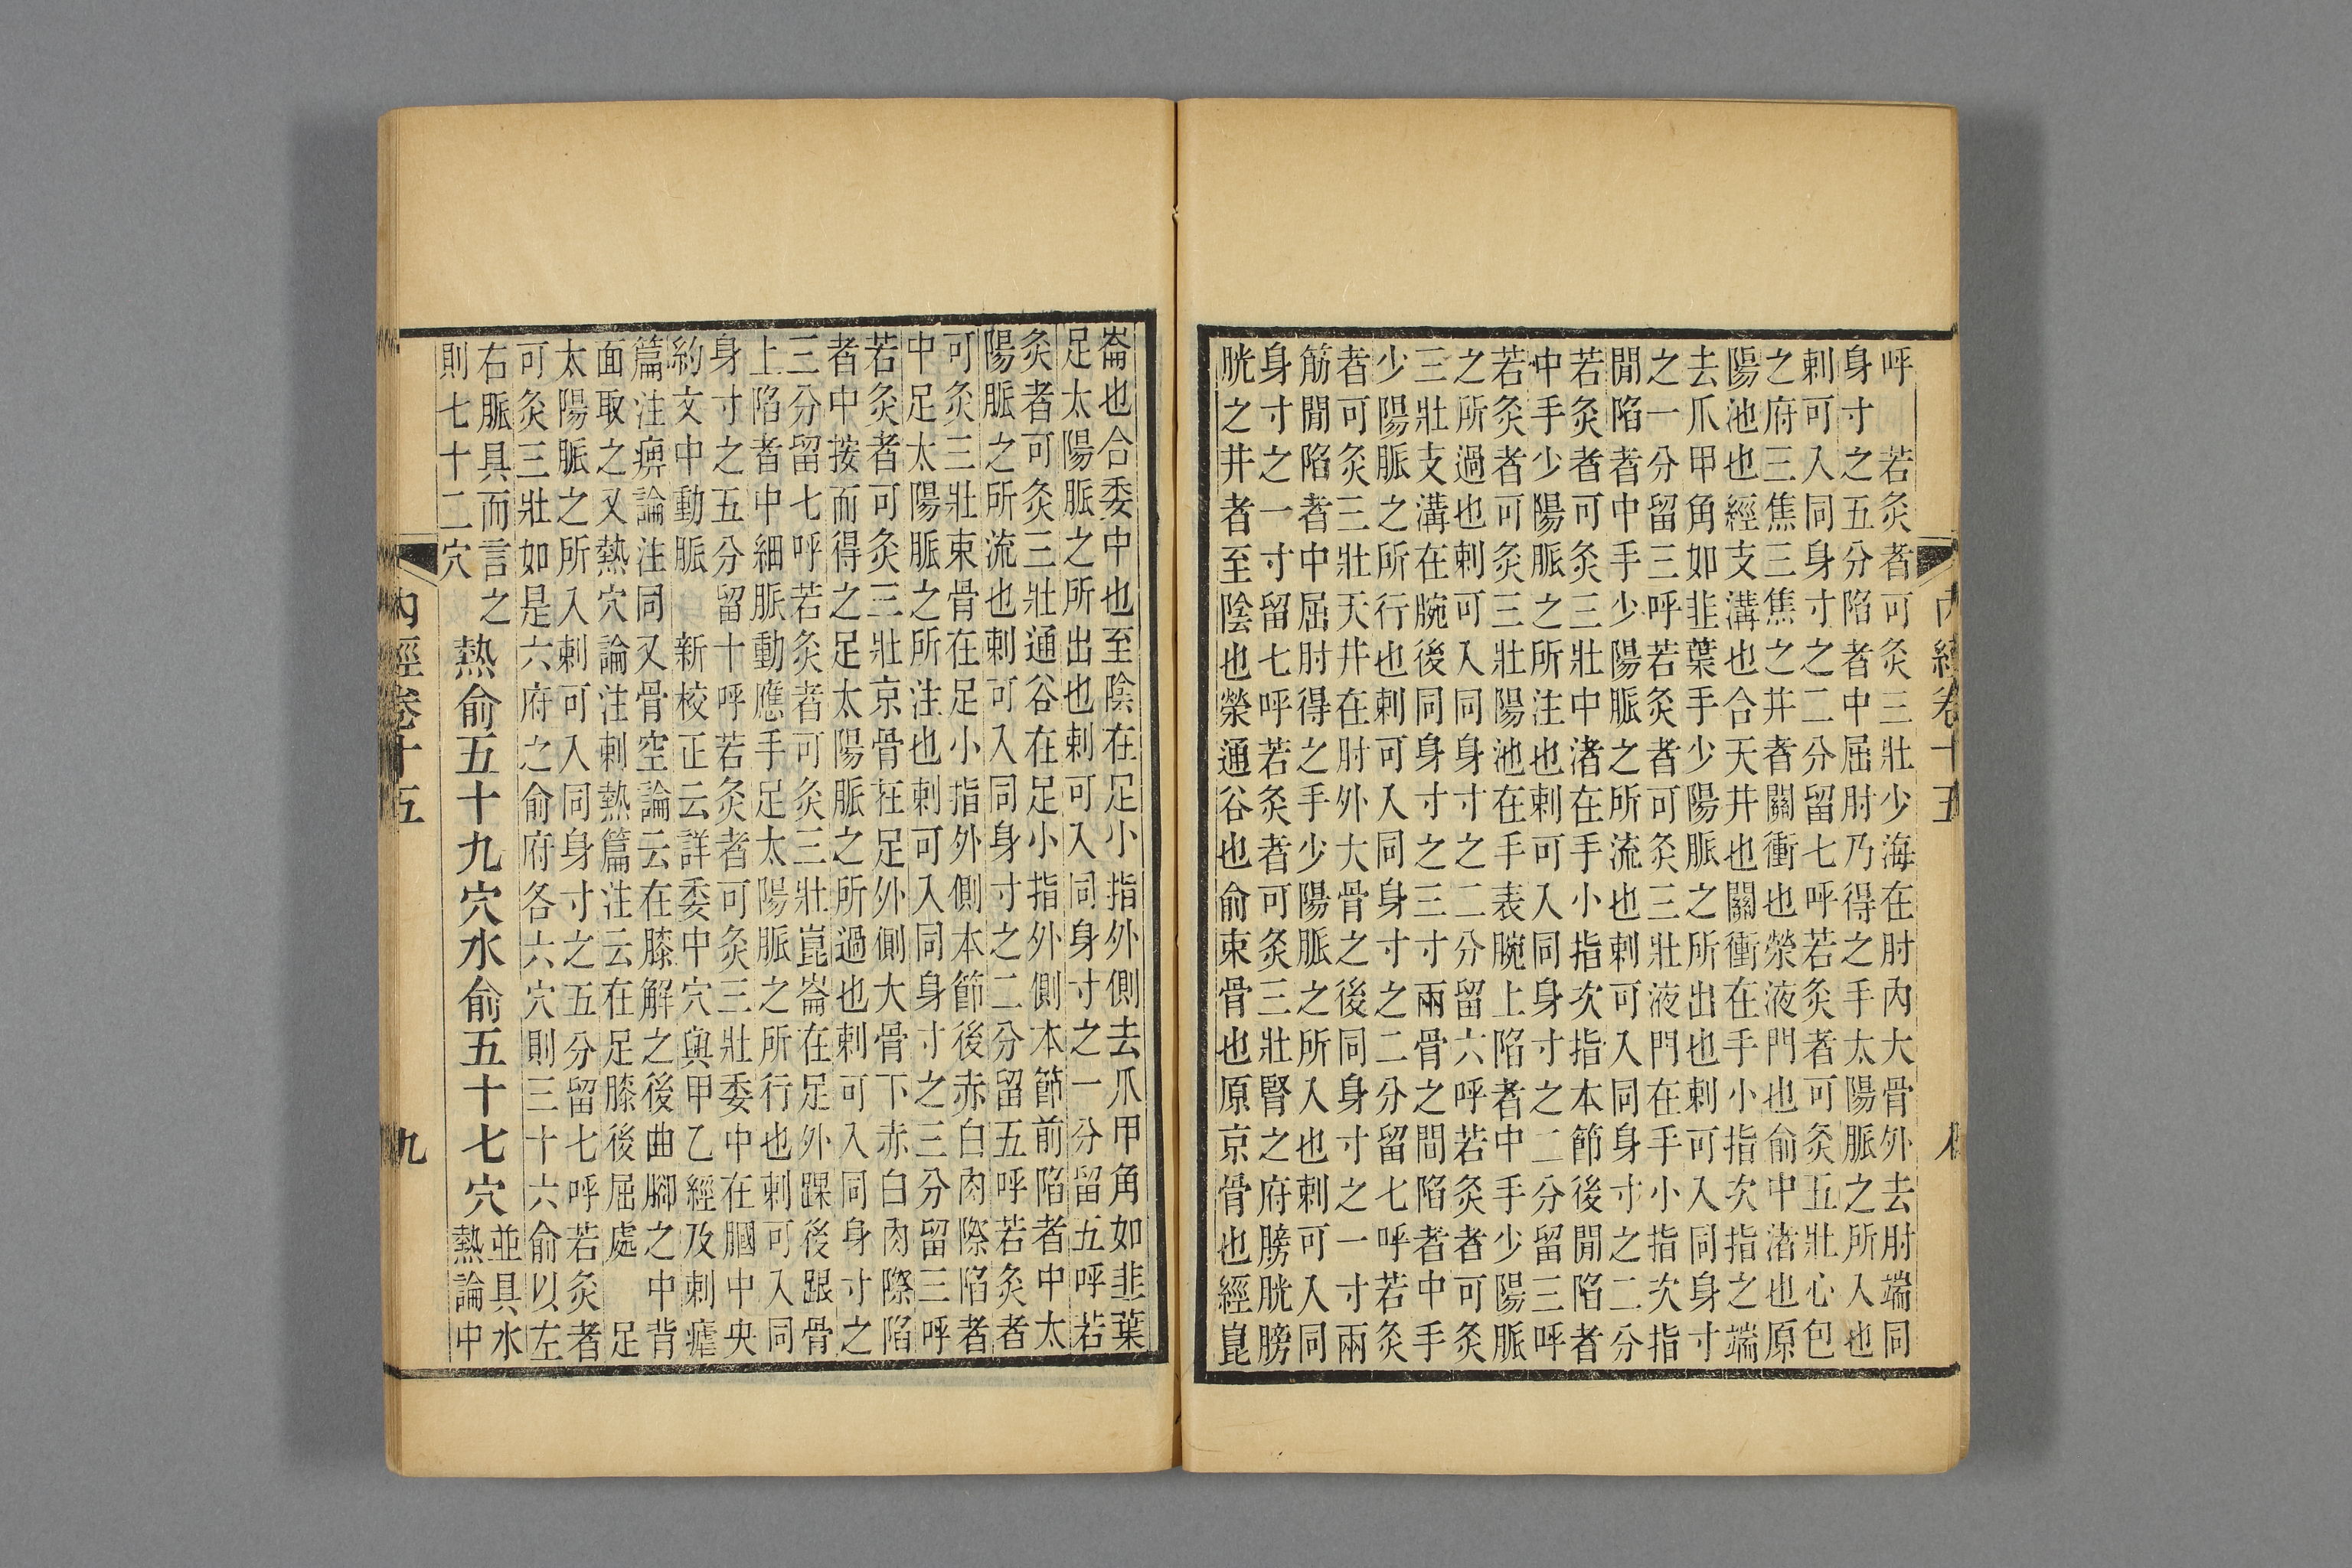 內經卷十五
呼 若灸者可灸三壯少海在肘內大骨外去肘端同
身寸之五分陷者中屈肘乃得之手太陽脈之所入也
刺可入同身寸之二分留七呼若灸者可灸五壯心包
之府三焦三焦之井者關衝也滎液門也俞中渚也原
陽池也經支溝也合天井也關衝在手小指次指之端
去爪甲角如韭葉手少陽脈之所出也刺可入同身寸
之一分留三呼若灸者可灸三壯液門在手小指次指
閒陷者中手少陽脈之所流也刺可入同身寸之二分
若灸者可灸三壯中渚在手小指次指本節後閒陷者
中手少陽脈之所注也刺可入同身寸之二分留三呼
若灸者可灸三壯陽池在手表腕上陷者中手少陽脈
之所過也刺可入同身寸之二分留六呼若灸者可灸
三壯支溝在腕後同身寸之三寸兩骨之間陷者中手
少陽脈之所行也刺可入同身寸之二分留七呼若灸
者可灸三壯天井在肘外大骨之後同身寸之一寸兩
筋閒陷者中屈肘得之手少陽脈之所入也刺可入同
身寸之一寸留七呼若灸者可灸三壯腎之府膀胱膀
胱之井者至陰也滎通谷也俞束骨也原京骨也經崑
崙也合委中也至陰在足小指外側去爪甲角如韭葉
足太陽脈之所出也刺可入同身寸之一分留五呼若
灸者可灸三壯通谷在足小指外側本節前陷者中太
陽脈之所流也刺可入同身寸之二分留五呼若灸者
可灸三壯束骨在足小指外側本節後赤白肉際陷者
中足太陽脈之所注也刺可入同身寸之三分留三呼
若灸者可灸三壯京骨在足外側大骨下赤白肉際陷
者中按而得之足太陽脈之所過也刺可入同身寸之
三分留七呼若灸者可灸三壯崑崙在足外踝後跟骨
上陷者中細脈動應手足太陽脈之所行也刺可入同
身寸之五分留十呼若灸者可灸三壯委中在膕中央
約文中動脈 新校正云詳委中穴與甲乙經及刺瘧
篇注痹論注同又骨空論云在膝解之後曲腳之中背
面取之又熱穴論注刺熱篇注云在足膝後屈處 足
太陽脈之所入刺可入同身寸之五分留七呼若灸者
可灸三壯如是六府之俞府各六穴則三十六俞以左
右脈具而言之
則七十二穴
熱俞五十九穴水俞五十七穴
並具水
熱論中
內經卷十五
九